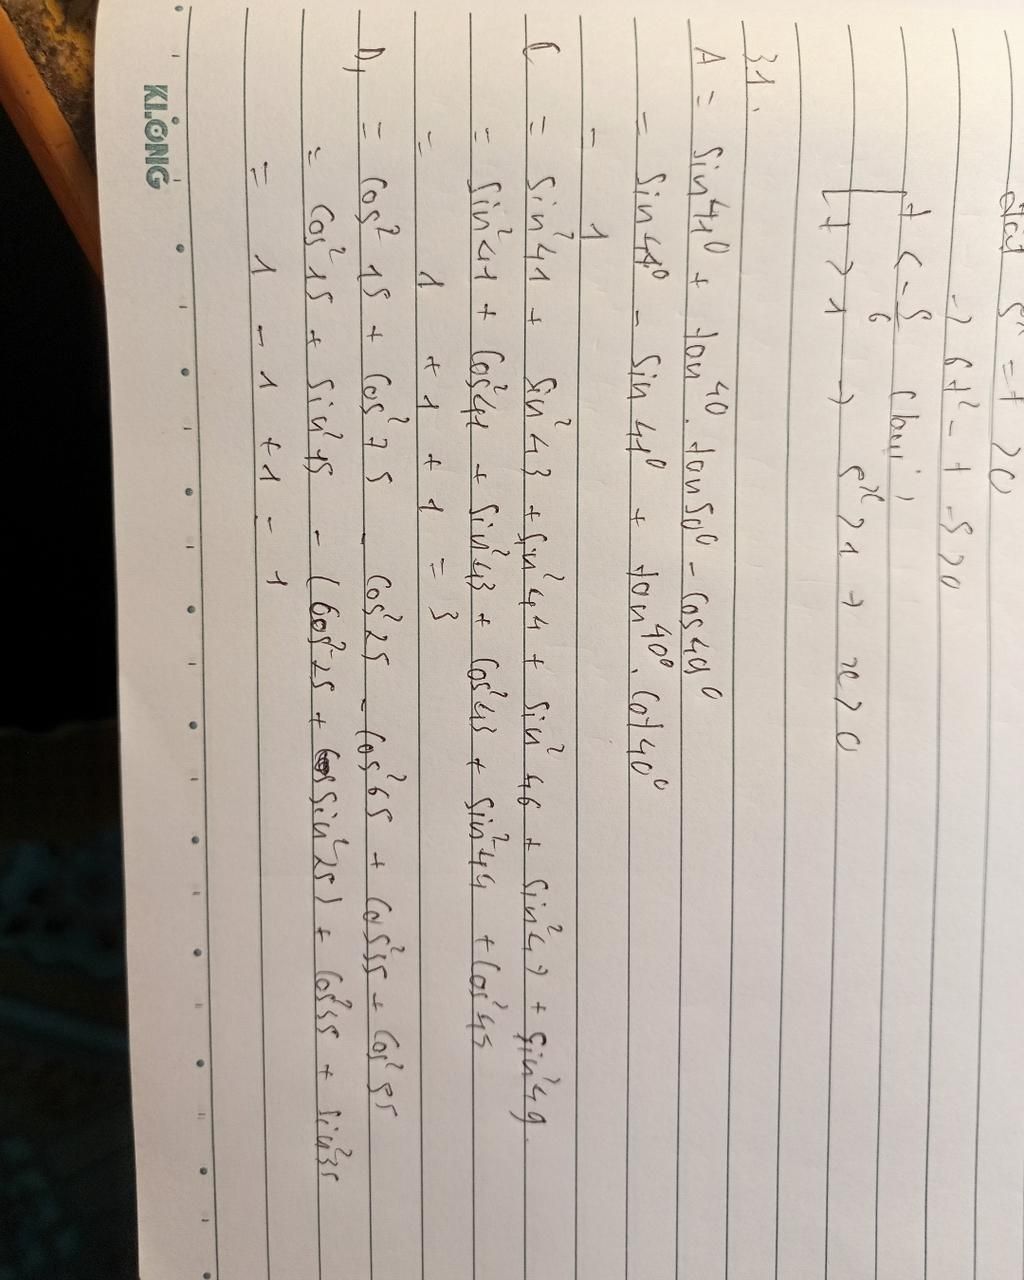 đặt 5ˣ = t > 0
→ 6t² - t - 5 > 0
t < -5/6 (loại)
t > 1 → 5ˣ > 1 → x > 0
31.
A = sin41⁰ + tan40. tan50⁰ - cos49⁰
= sin41⁰ - sin41⁰ + tan40⁰. cot40⁰
= 1
C = sin²41 + sin²43 + sin²44 + sin²46 + sin²47 + sin²49.
= sin²41 + cos²41 + sin²43 + cos²43 + sin²44 + cos²45
= 1 + 1 + 1 = 3
D, = cos²15 + cos²75 - cos²25 - cos²65 + cos²35 + cos²55
= cos²15 + sin²15 - (cos²25 + sin²25) + cos²35 + sin²35
= 1 - 1 + 1 = 1
KLONG